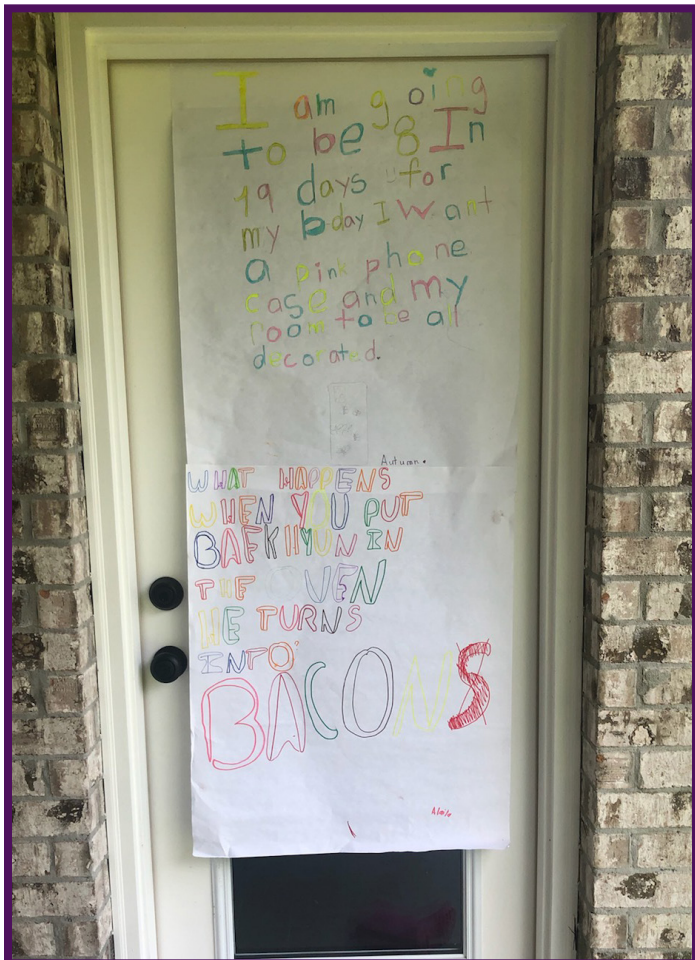 I am going
to be 8 In
19 days for
my bday I want
a pink phone
case and my
room to be all
decorated.
Autumn.
WHAT HAPPENS
WHEN YOU PUT
BAEKHYUN IN
THE OVEN
HE TURNS
INTO
BACONS